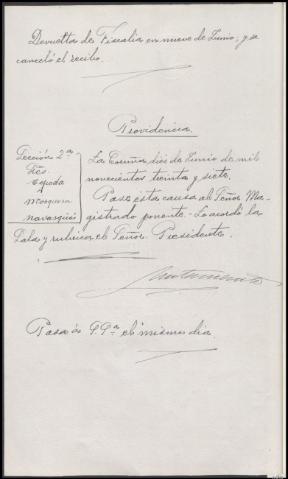 Devuelta de Fiscalía en nueve de Junio; y se
canceló el recibo.
Providencia
Sección 2ª
Sres.
Cepeda
Mosquera
Navarques
La Coruña, diez de Junio de mil
novecientos treinta y siete.
Pase esta causa al Señor Ma-
gistrado ponente.- Lo acordó la
Sala y rubrica el Señor Presidente.
Pasa á S.Sª el mismo dia.